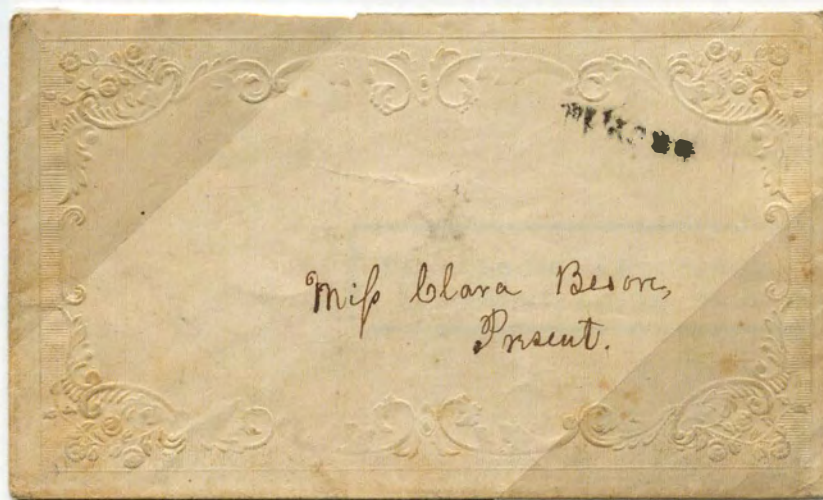 Miſs Clara Besore,
Present.